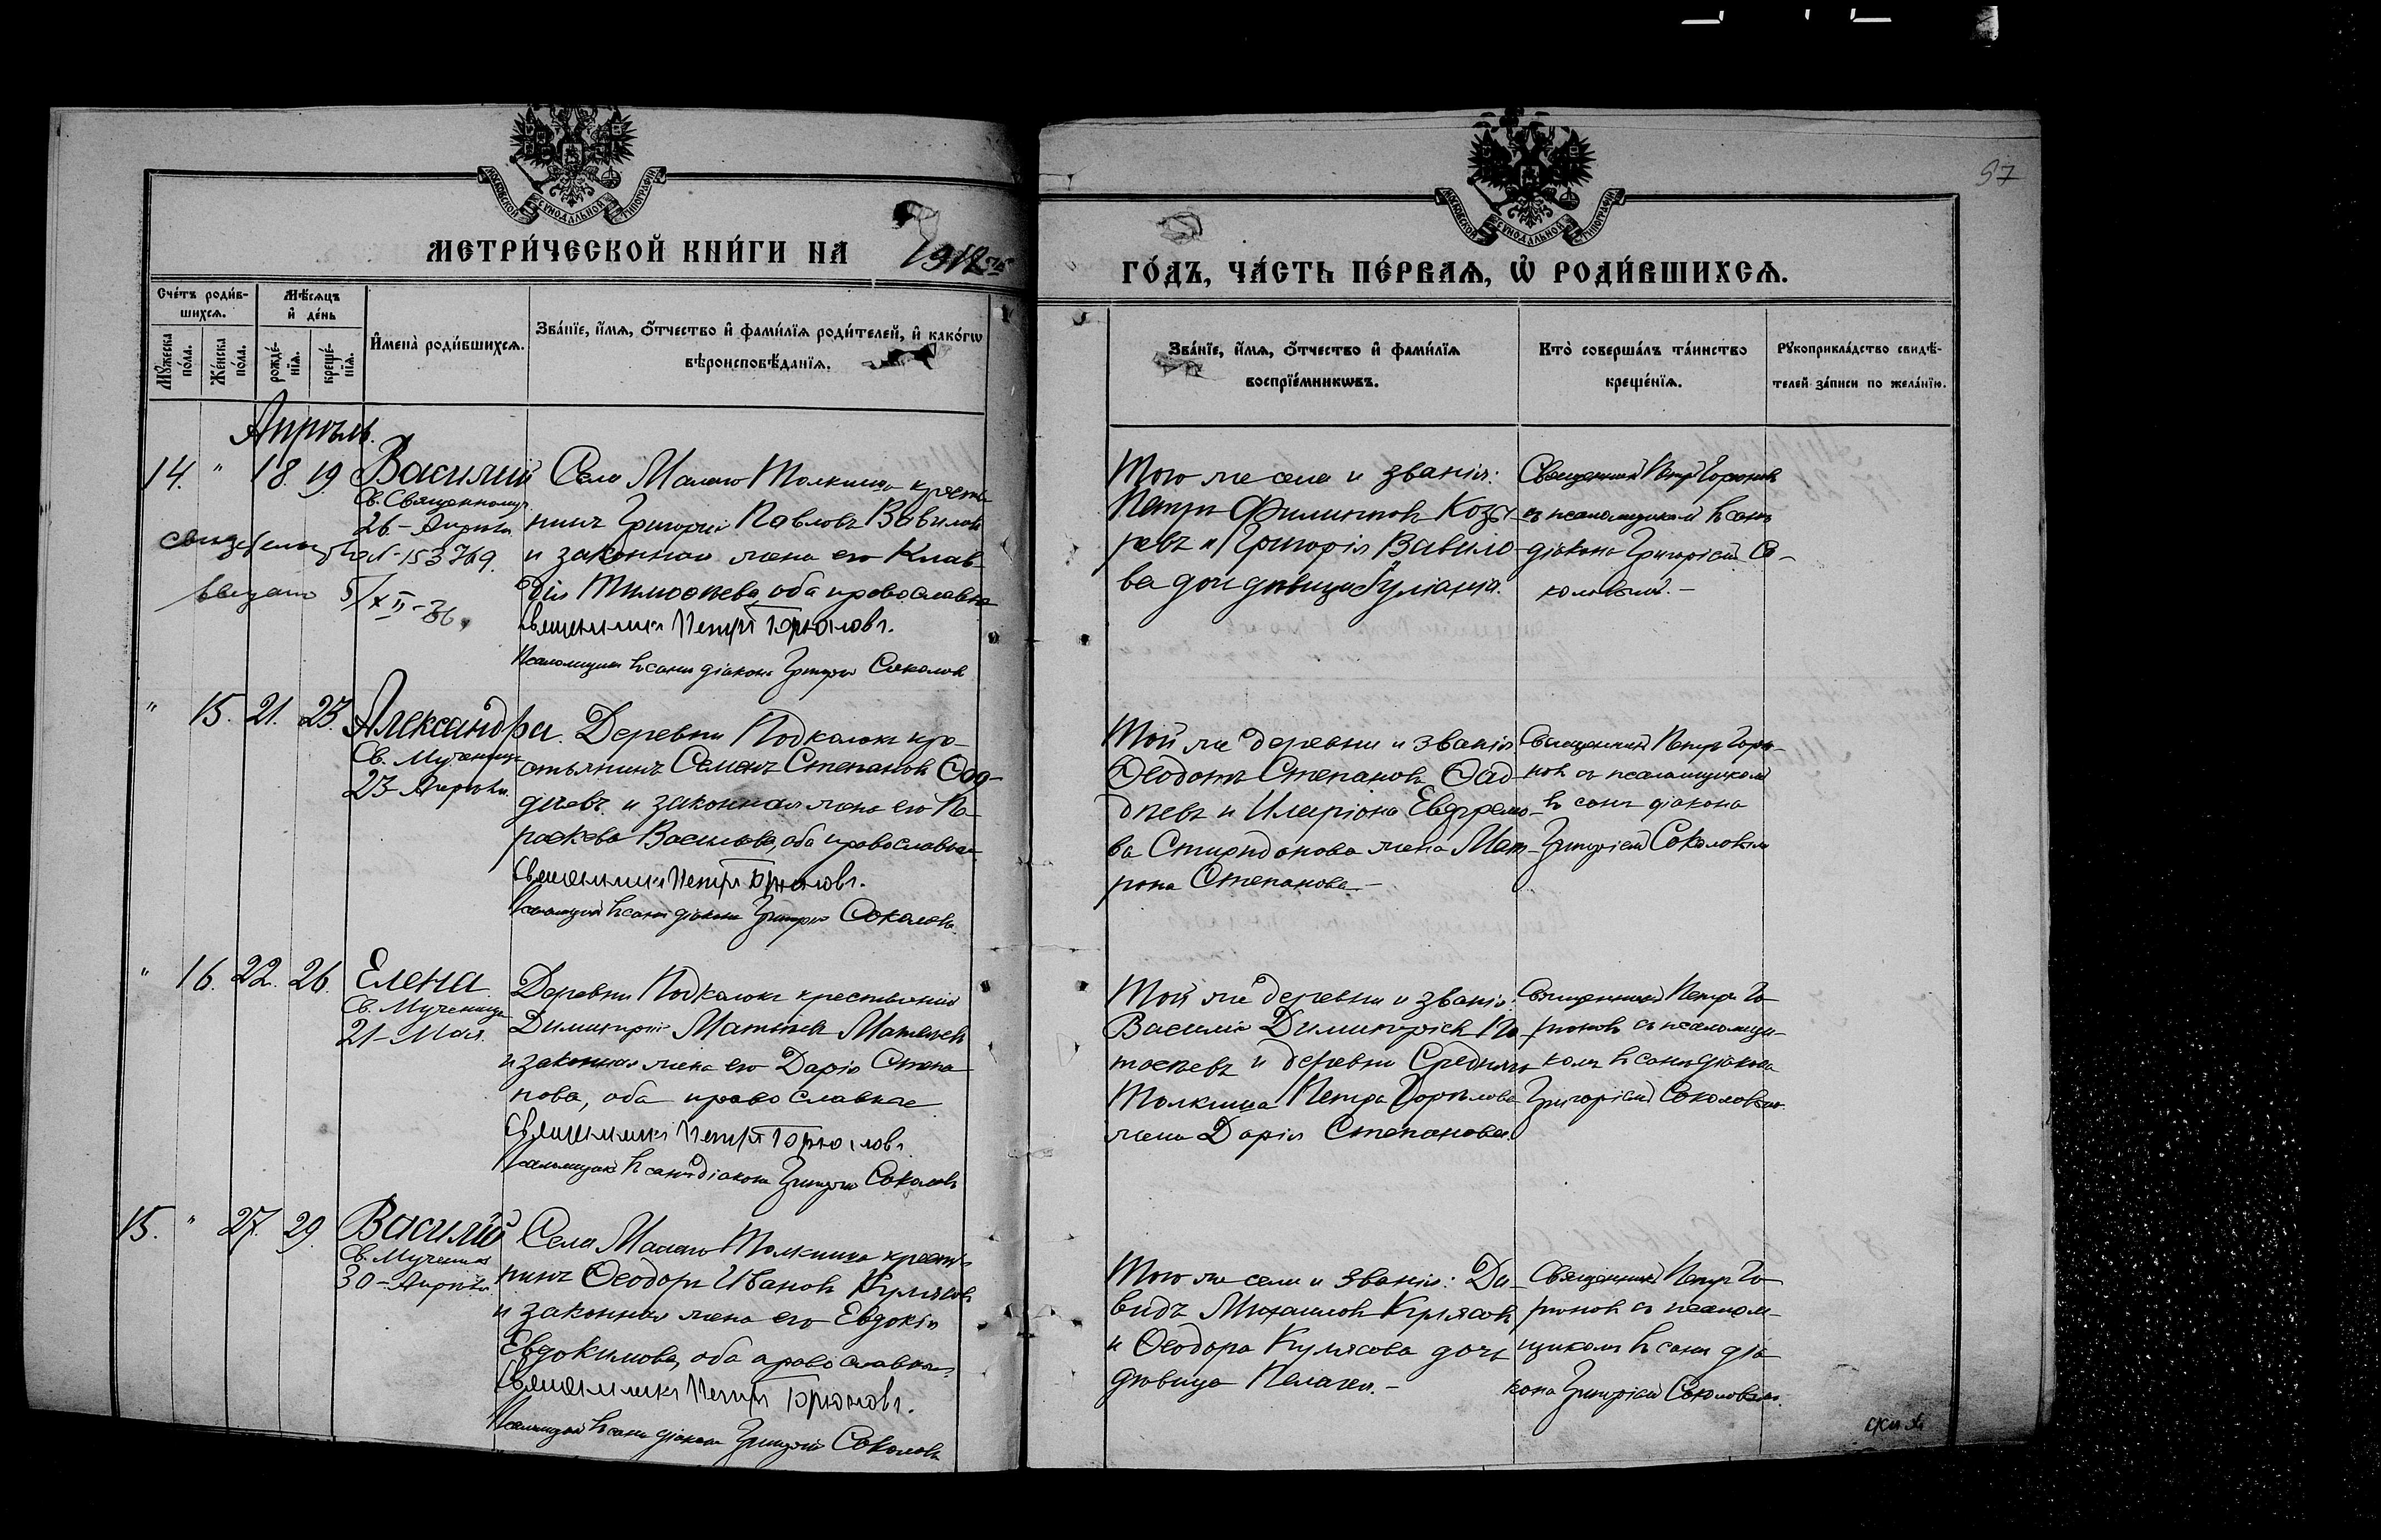 МОСКОВСКОЙ СѴНОДАЛЬНОЙ ТИПОГРАФІИ
МОСКОВСКОЙ СѴНОДАЛЬНОЙ ТИПОГРАФІИ
97
МЕТРИ́ЧЕСКОЙ КНИ́ГИ НА 1912
ГО́ДЪ, ЧА́СТЬ ПЕ́РВАѦ, Ѽ РОДИ́ВШИХСѦ.
Сче́тъ роди́в-
шихсѧ.
Мꙋ́жеска по́ла.
Же́нска по́ла.
Мѣ́сѧцъ
и҆ де́нь
рожде́-
нїѧ.
креще́-
нїѧ.
И҆мена̀ роди́вшихсѧ.
Зва́нїе, и҆́мѧ, ѻ҆́тчество и҆ фами́лїѧ роди́телей, и҆ како́гѡ
вѣроисповѣ́данїѧ.
Зва́нїе, и҆́мѧ, ѻ҆́тчество и҆ фами́лїѧ
воспрїе́мникѡвъ.
Кто̀ соверша́лъ та́инство
креще́нїѧ.
Рꙋкоприкла́дство свидѣ́-
телей за́писи по жела́нїю.
Апрѣль.
14. " 18. 19. Василий
Св. Священномуч.
26 - Апрѣля
свидетельство № 153769.
выдано 5/XII-36.
Село Малаго Толкиша крестья
нинъ Григорий Павловъ Вавиловъ
и законная жена его Клав-
дія Тимоѳеева, оба православные
Священникъ Петръ Горюновъ.
Псаломщикъ въ санѣ діакона Григорій Соколовъ
Того же села и званія:
Петръ Филипповъ Козы
ревъ и Григорія Вавило-
ва дочь дѣвица Іуліанія.
Священникъ Петръ Горюновъ
съ псаломщикомъ въ санѣ
діакона Григоріемъ Со-
коловымъ. -
" 15. 21. 23. Александра.
Св. Мученицы
23 - Апрѣля
Деревни Подкалокъ кре-
стьянинъ Семенъ Степановъ Ѳад-
дѣевъ и законная жена его Па-
раскева Васильева, оба православные
Священникъ Петръ Горюновъ.
Псаломщикъ въ санѣ діакона Григорій Соколовъ.
Той же деревни и званія
Ѳеодотъ Степановъ Ѳад-
дѣевъ и Иларіона Евдремо-
ва Спиридонова жена Мат-
рона Степанова -
Священникъ Петръ Горю-
новъ съ псаломщикомъ
въ санѣ діакона
Григоріемъ Соколовымъ
" 16. 22. 26. Елена
Св. Мученицы
21 - Мая.
Деревни Подкалокъ крестьянинъ
Димитрій Матвѣевъ Матвѣевъ
и законная жена его Дарія Степа
нова, оба православные
Священникъ Петръ Горюновъ.
Псаломщикъ въ санѣ діакона Григорій Соколовъ
Той же деревни и званія:
Василій Димитріевъ
и деревни Средняго
Толкиша Петра Горѣлова
жена Дарія Степанова.
Священникъ Петръ Го-
рюновъ съ псаломщи-
комъ въ санѣ діакона
Григоріемъ Соколовымъ.
15. " 27. 29. Василій
Св. Мученика
30 - Апрѣля.
Села Малаго Толкиша крестья
нинъ Ѳеодоръ Ивановъ Кулясовъ
и законная жена его Евдокія
Евдокимова, оба православные.
Священникъ Петръ Горюновъ.
Псаломщикъ въ санѣ діакона Григорій Соколовъ
Того же села и званія: Да-
видъ Михаиловъ Кулясовъ
и Ѳеодора Кулясова дочь
дѣвица Пелагея. -
Священникъ Петръ Го-
рюновъ съ псалом-
щикомъ въ санѣ діа-
кона Григоріемъ Соколовымъ.